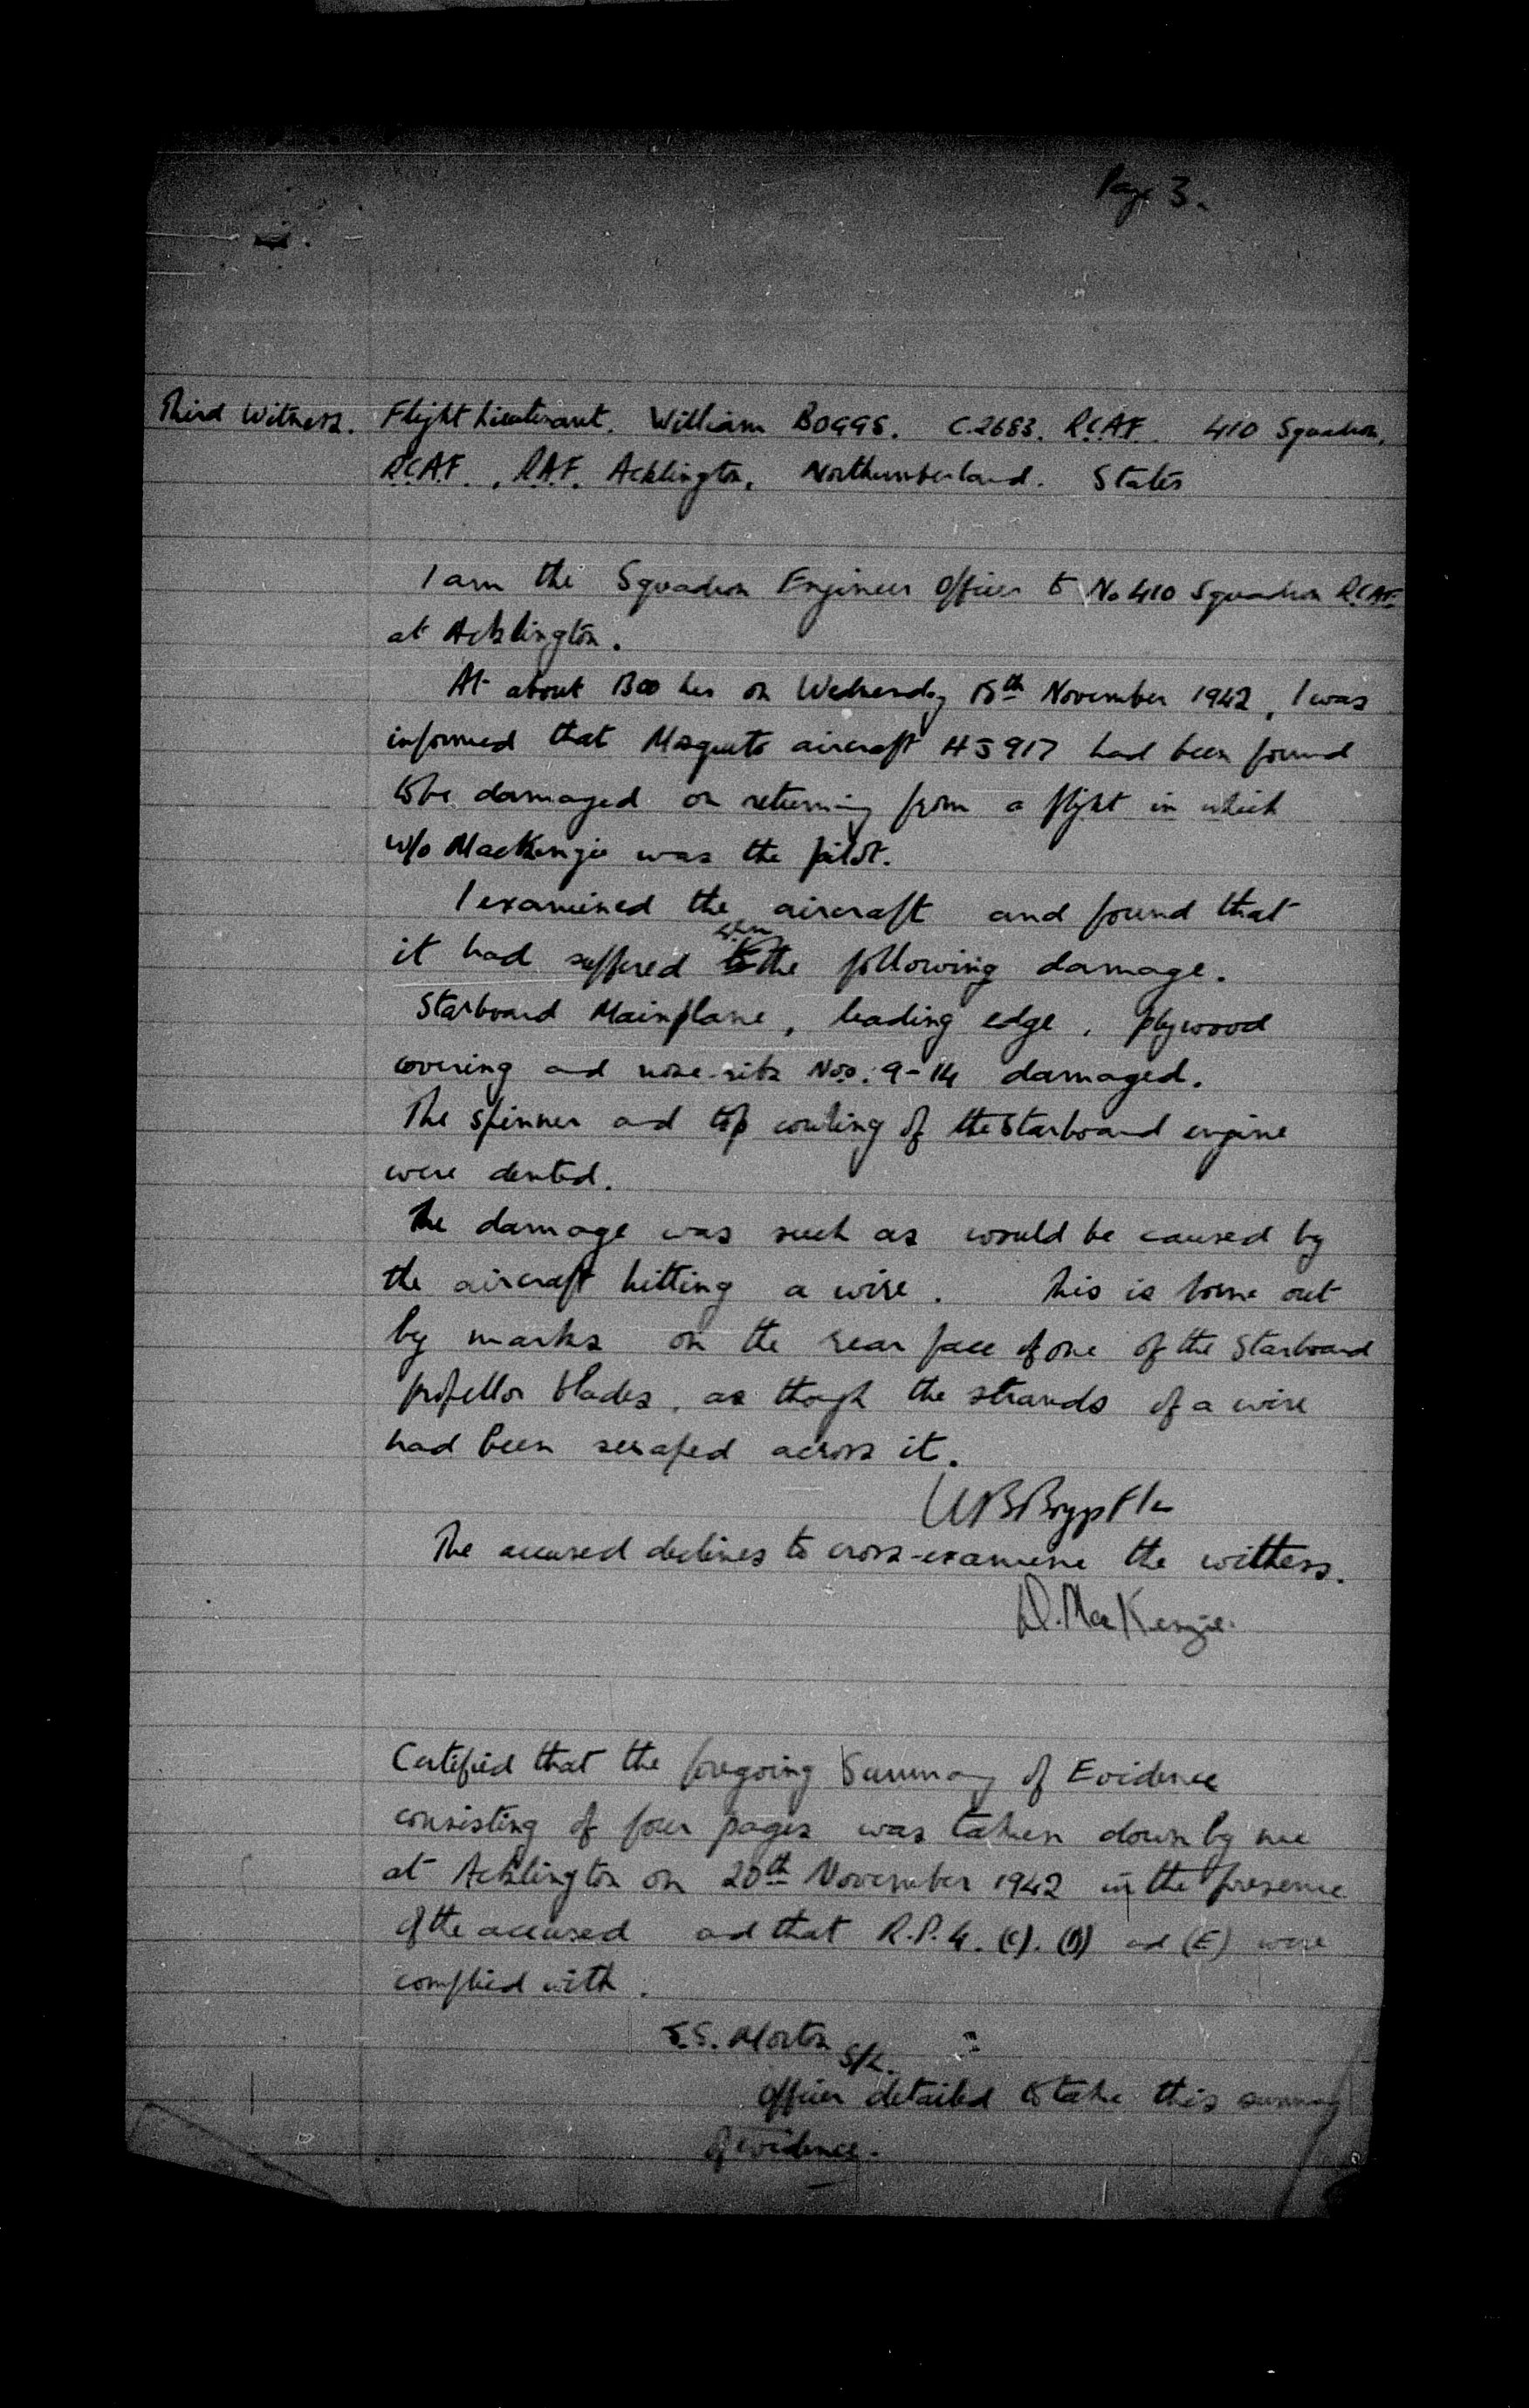 Page 3.
Third Witness. Flight Lieutenant. William BOGGS. C.2683. R.C.A.F. 410 Squadron,
R.C.A.F., R.A.F. Acklington, Northumberland. States
I am the Squadron Engineer Officer to No 410 Squadron R.C.A.F.
at Acklington.
At about 1300 hrs on Wednesday 18th November 1942, I was
informed that Mosquito aircraft HJ917 had been found
to be damaged on returning from a flight in which
W/O MacKenzie was the pilot.
I examined the aircraft and found that
it had suffered the following damage.
Starboard Mainplane, leading edge, plywood
covering and nose-ribs Nos. 9-14 damaged.
The spinner and top cowling of the Starboard engine
were dented.
The damage was such as would be caused by
the aircraft hitting a wire. This is borne out
by marks on the rear face of one of the Starboard
propellor blades, as though the strands of a wire
had been scraped across it.
WB Boggs F/L
The accused declines to cross-examine the witness.
D. MacKenzie.
Certified that the foregoing Summary of Evidence
consisting of four pages was taken down by me
at Acklington on 20th November 1942 in the presence
of the accused and that R.P.4. (C). (D) and (E) were
complied with.
S.S. Morton S/L.
Officer detailed to take this summary
of evidence.